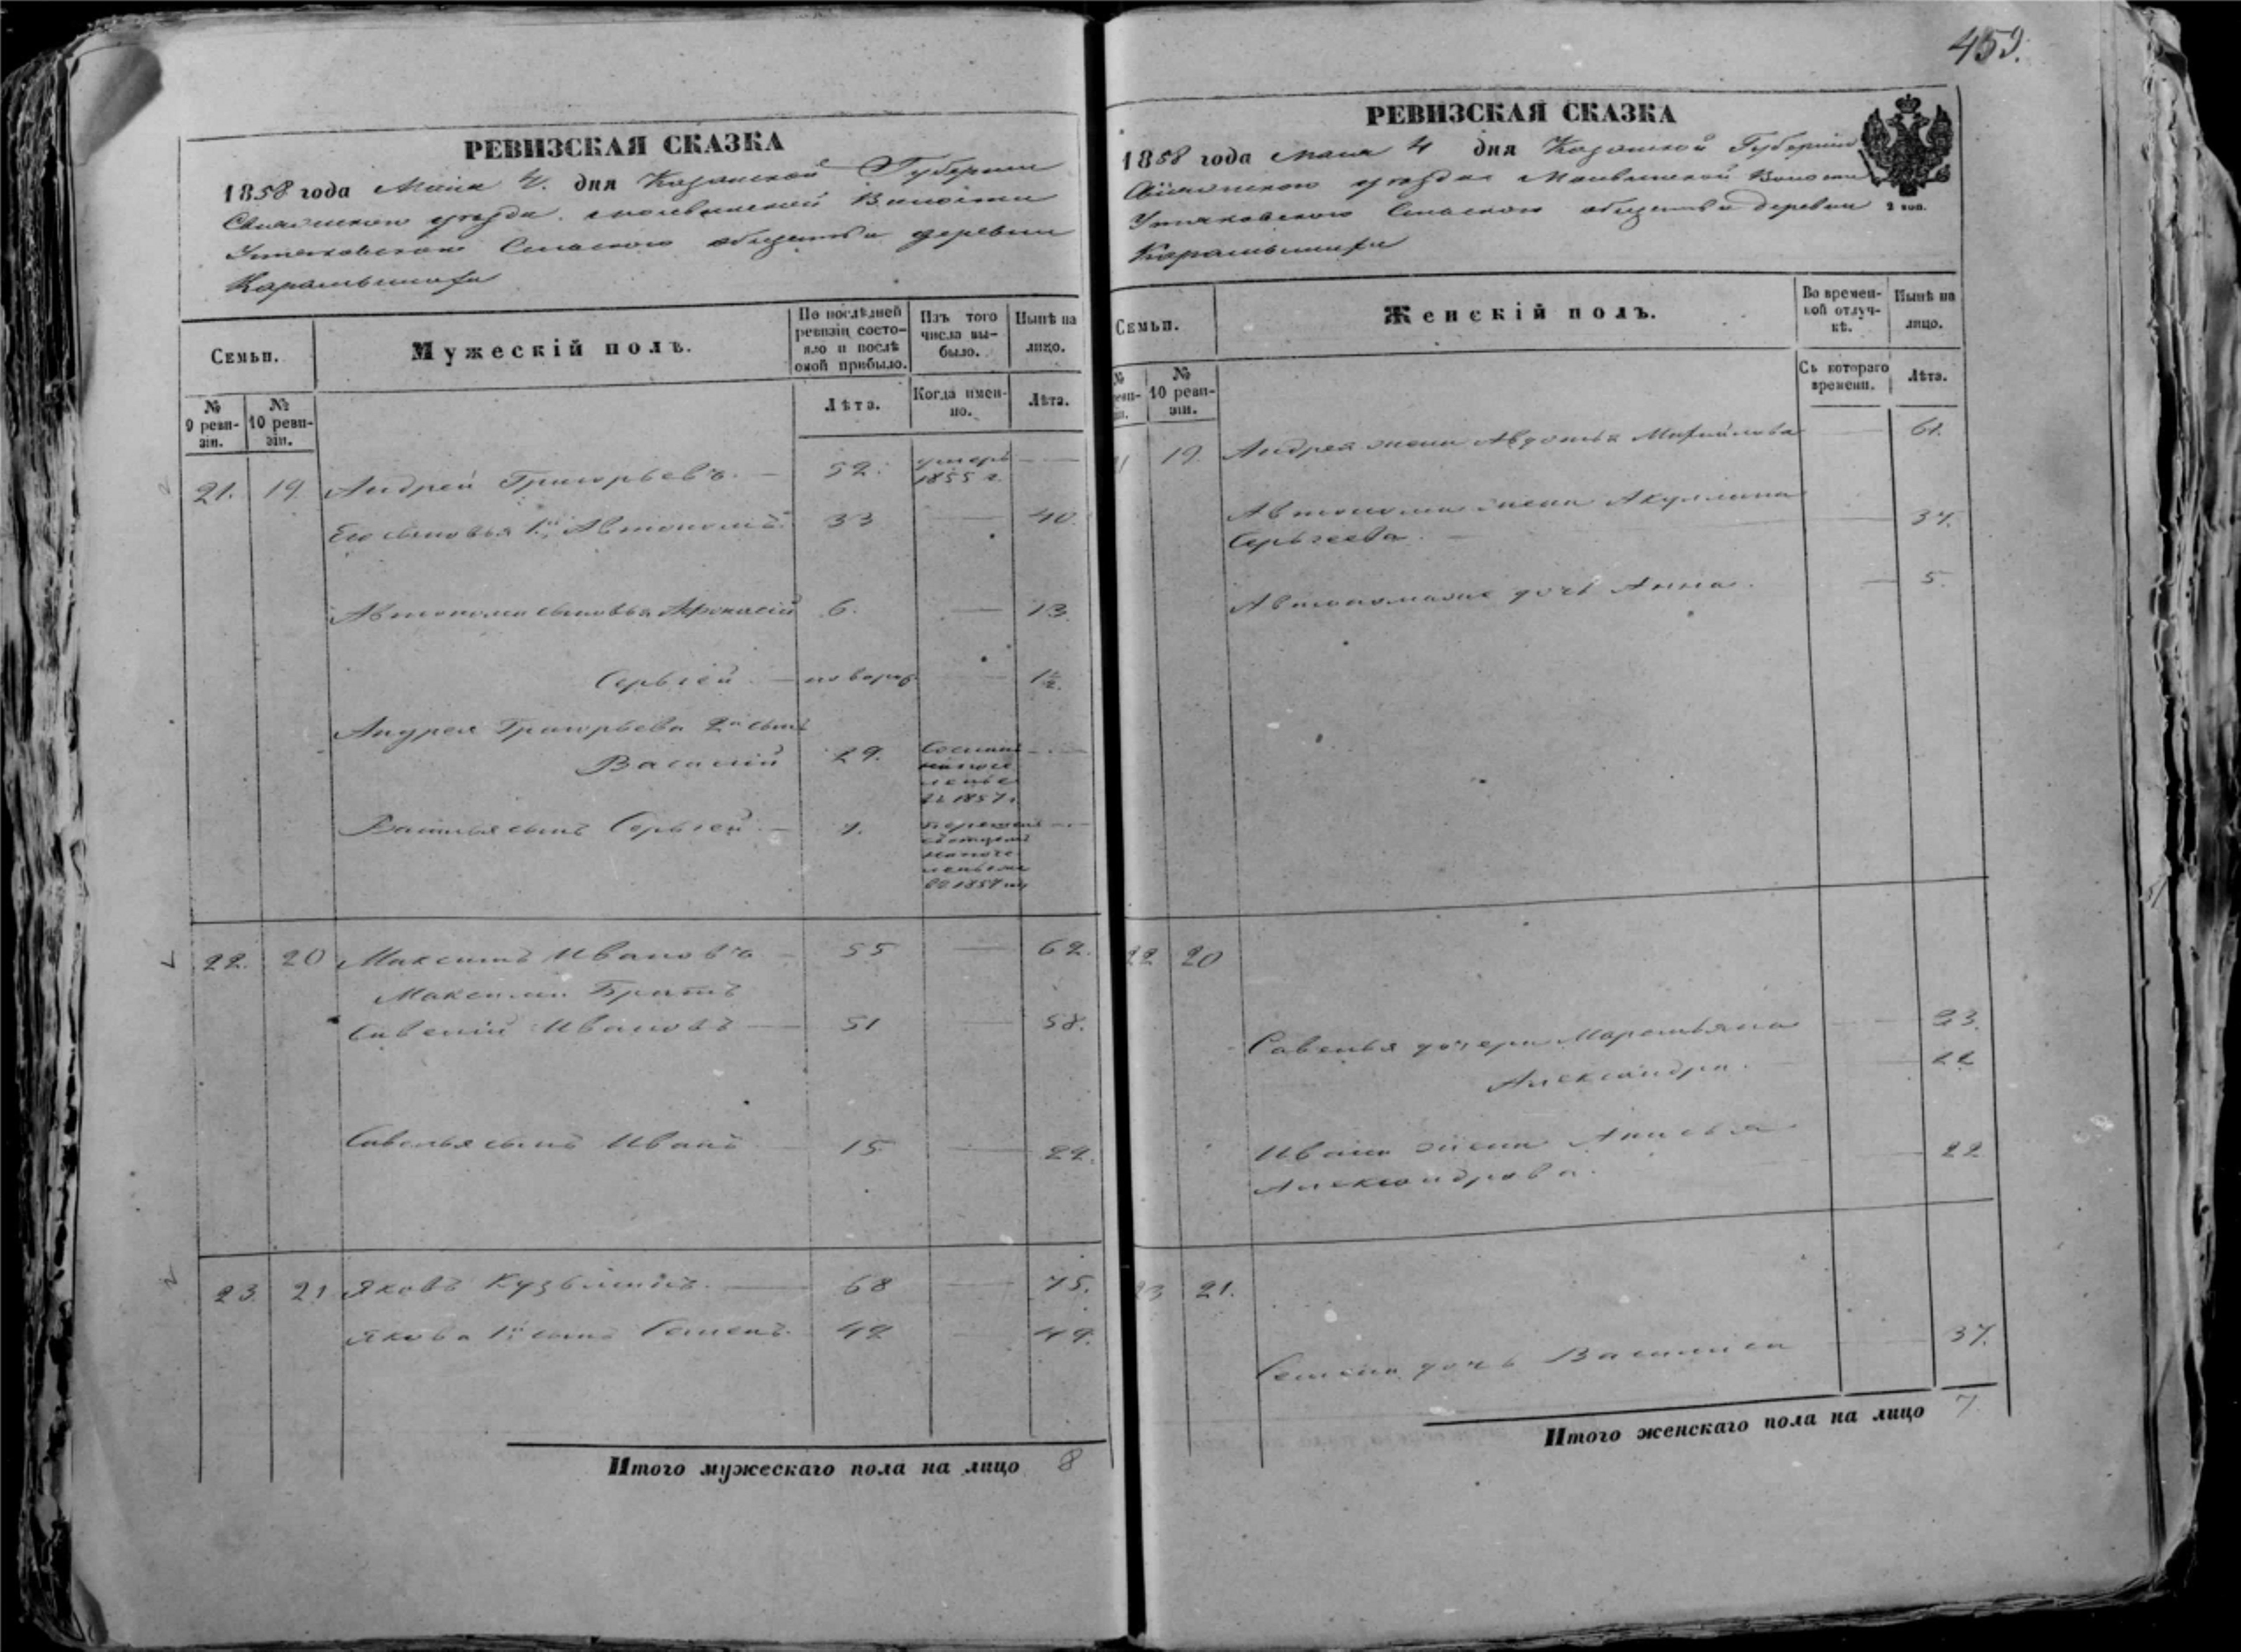 459.
РЕВИЗСКАЯ СКАЗКА
1858 года Маия 4. дня Казанской Губернии
Свияжского уезда Волости
Утяковского Сельского общества деревни
РЕВИЗСКАЯ СКАЗКА
1858 года Маия 4 дня Казанской Губернии
Свияжского уезда Волости
Утяковского Сельского общества деревни
2 коп.
Семьи.
Мужескій полъ.
По послѣдней ревизіи состояло и послѣ оной прибыло.
Изъ того числа выбыло.
Нынѣ на лицо.
№ 9 ревизіи.
№ 10 ревизіи.
Лѣта.
Когда именно.
Лѣта.
21. 19. Андрей Григорьевъ. — 52. умеръ 1855 г. —
Его сыновья 1й Автономъ 33 — 40.
Автонома сыновья Афонасій 6. — 13.
Сергѣй — новорож — 1½.
Андрея Григорьева 2й сынъ
Василій 29. 1857 г. —
Василья сынъ Сергѣй — 7. съ отцемъ —
22. 20 Максимъ Ивановъ — 55 — 62.
Максима Братъ
Савелій Ивановъ — 51 — 58.
Савелья сынъ Иванъ 15 — 22.
23. 21 Яковъ Кузьминъ. — 68 — 75.
Якова 1й сынъ Семенъ. 42 — 49.
Итого мужескаго пола на лицо 8
Семьи.
Женскій полъ.
Во временной отлучкѣ.
Нынѣ на лицо.
№
№ 10 ревизіи.
Съ котораго времени.
Лѣта.
19. Андрея жена Авдотья Михайлова — 61.
Автонома жена Акулина
Сергѣева. — 37.
Автонома дочь Анна. — 5.
22 20
Савелья дочери Маремьяна — 23.
Александра. — 22
Ивана жена Анисья
Александрова. — 22
23 21.
Семена дочь Василиса — 37.
Итого женскаго пола на лицо 7.